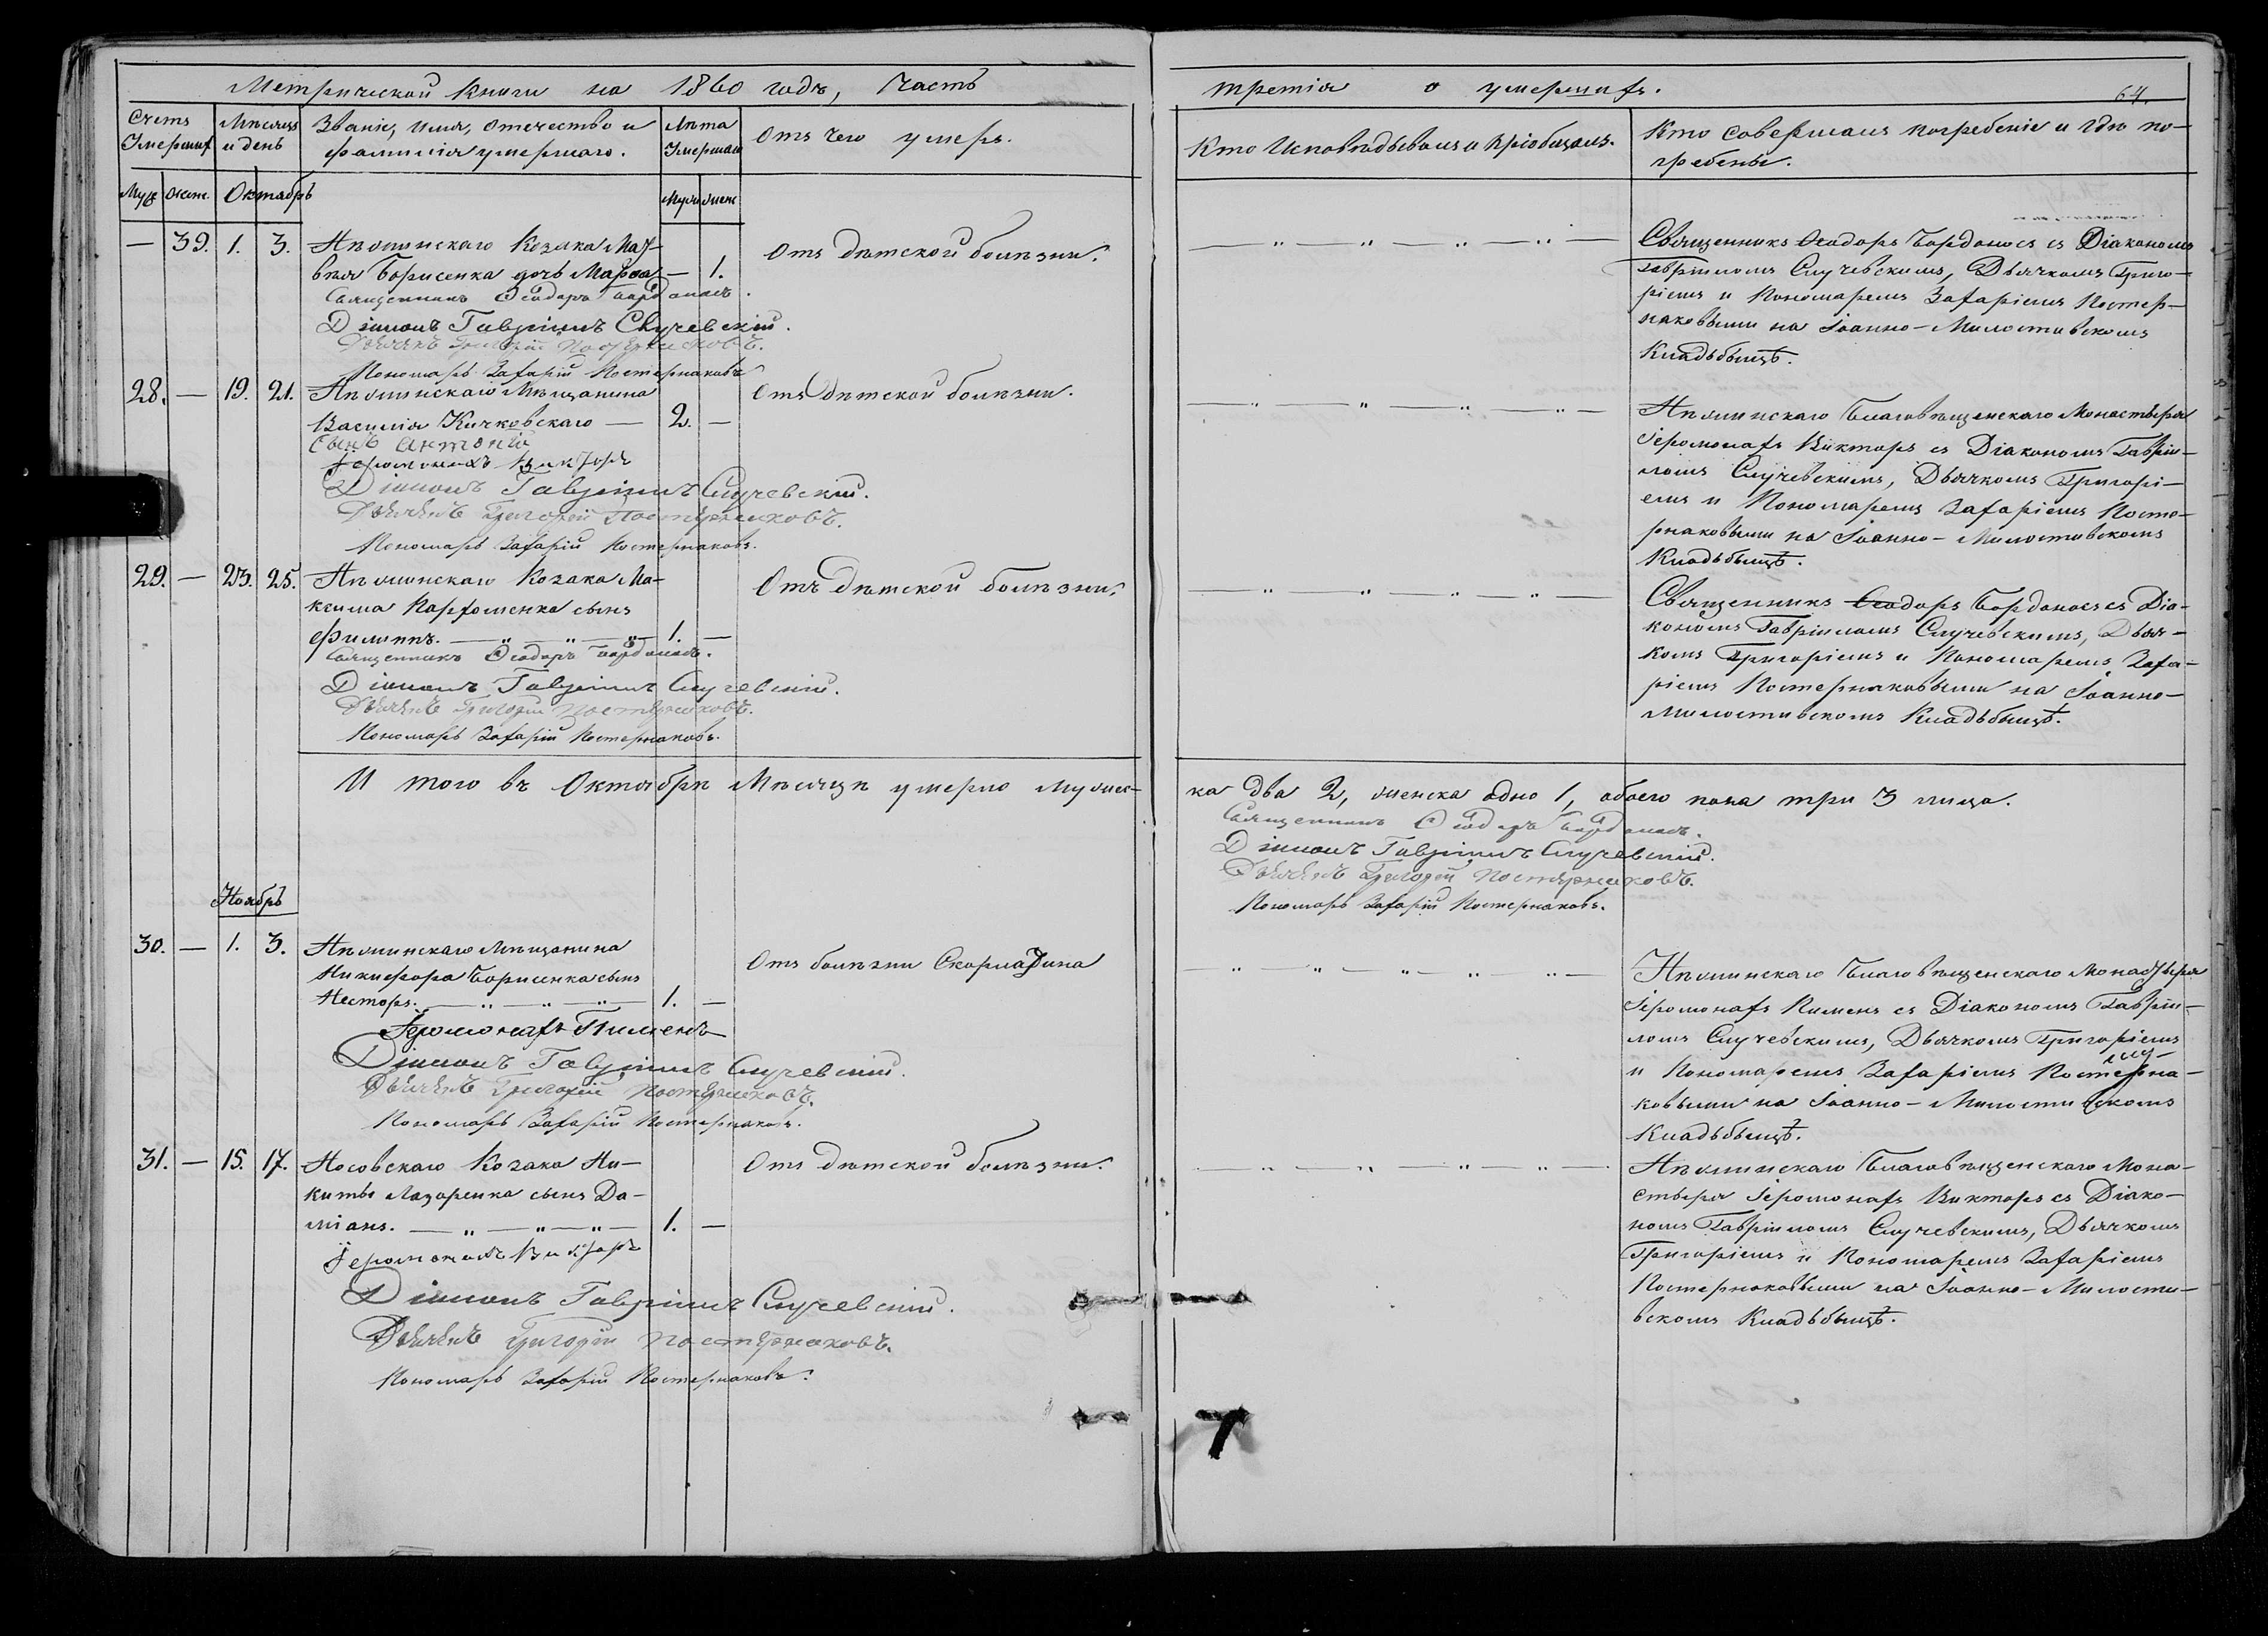 Метрической Книги на 1860 годъ, Часть
третія о умершихъ.
64.
Счетъ Умершихъ
Мѣсяцъ и день
Званіе, имя, отечество и фамилія умершаго.
Лѣта Умершаго
Отъ чего умеръ.
Кто Исповѣдывалъ и пріобщалъ.
Кто совершалъ погребеніе и гдѣ по-
гребены.
Муж. Жен. Октябрь
Муж. жен.
— 39. 1. 3. Нѣжинскаго Козака Мат-
вѣя Борисенка дочь Марѳа — 1.
Отъ дѣтской болѣзни.
Священникъ Ѳеодоръ Бордоносъ.
Діаконъ Гавріилъ Случевскій.
Дьячекъ Григорій Постернаковъ.
Пономарь Захарій Постернаковъ
Священникъ Ѳеодоръ Бордоносъ съ Діакономъ
Гавріиломъ Случевскимъ, Дьячкомъ Григо-
ріемъ и Пономаремъ Захаріемъ Постер-
наковыми на Іоанно-Милостивскомъ
Кладьбищѣ.
28. — 19. 21. Нѣжинскаго Мѣщанина
Василія Кичковскаго — 2. —
сынъ Антоній
Отъ Дѣтской болѣзни.
Іеромонахъ Викторъ
Діаконъ Гавріилъ Случевскій.
Дьячекъ Григорій Постернаковъ.
Пономарь Захарій Постернаковъ.
Нѣжинскаго Благовѣщенскаго Монастыря
Іеромонахъ Викторъ съ Діакономъ Гаврии-
ломъ Случевскимъ, Дьячкомъ Григорі-
емъ и Пономаремъ Захаріемъ Посте-
рнаковыми на Іоанно-Милостивскомъ
Кладьбищѣ.
29. — 23. 25. Нѣжинскаго Козака Ма-
ксима Парфоменка сынъ
Филиппъ. — „ — „ — „ — 1. —
Отъ дѣтской болѣзни.
Священникъ Ѳеодоръ Бордоносъ.
Діаконъ Гавріилъ Случевскій.
Дьячекъ Григорій Постернаковъ.
Пономарь Захарій Постернаковъ.
Священникъ Ѳеодоръ Бордоносъ съ Діа-
кономъ Гавріиломъ Случевскимъ, Дьяч-
комъ Григоріемъ и Пономаремъ Заха-
ріемъ Постернаковыми на Іоанно-
Милостивскомъ Кладьбищѣ.
И того въ Октябрѣ Мѣсяцѣ умерло мужес-
ка два 2, женска одно 1, обоего пола три 3 лица.
Священникъ Ѳеодоръ Бордоносъ.
Діаконъ Гавріилъ Случевскій.
Дьячекъ Григорій Постернаковъ.
Пономарь Захарій Постернаковъ.
Ноябрь
30. — 1. 3. Нѣжинскаго Мѣщанина
Никифора Борисенка сынъ
Несторъ. — „ — „ — „ — 1. —
Отъ болѣзни Скорлатина
Іеромонахъ Пименъ
Діаконъ Гавріилъ Случевскій.
Дьячекъ Григорій Постернаковъ.
Пономарь Захарій Постернаковъ.
Нѣжинскаго Благовѣщенскаго Монастыря
Іеромонахъ Пименъ съ Діакономъ Гаврии-
ломъ Случевскимъ, Дьячкомъ Григоріемъ
и Пономаремъ Захаріемъ Постерна-
ковыми на Іоанно-Милостивскомъ
Кладьбищѣ.
31. — 15. 17. Носовскаго Козака Ни-
киты Лазаренка сынъ Да-
міанъ. — „ — „ — „ — 1. —
Отъ дѣтской болѣзни.
Іеромонахъ Викторъ
Діаконъ Гавріилъ Случевскій.
Дьячекъ Григорій Постернаковъ.
Пономарь Захарій Постернаковъ.
Нѣжинскаго Благовѣщенскаго Мона-
стыря Іеромонахъ Викторъ съ Діако-
номъ Гавріиломъ Случевскимъ, Дьячкомъ
Григоріемъ и Пономаремъ Захаріемъ
Постернаковыми на Іоанно-Милости-
вскомъ Кладьбищѣ.